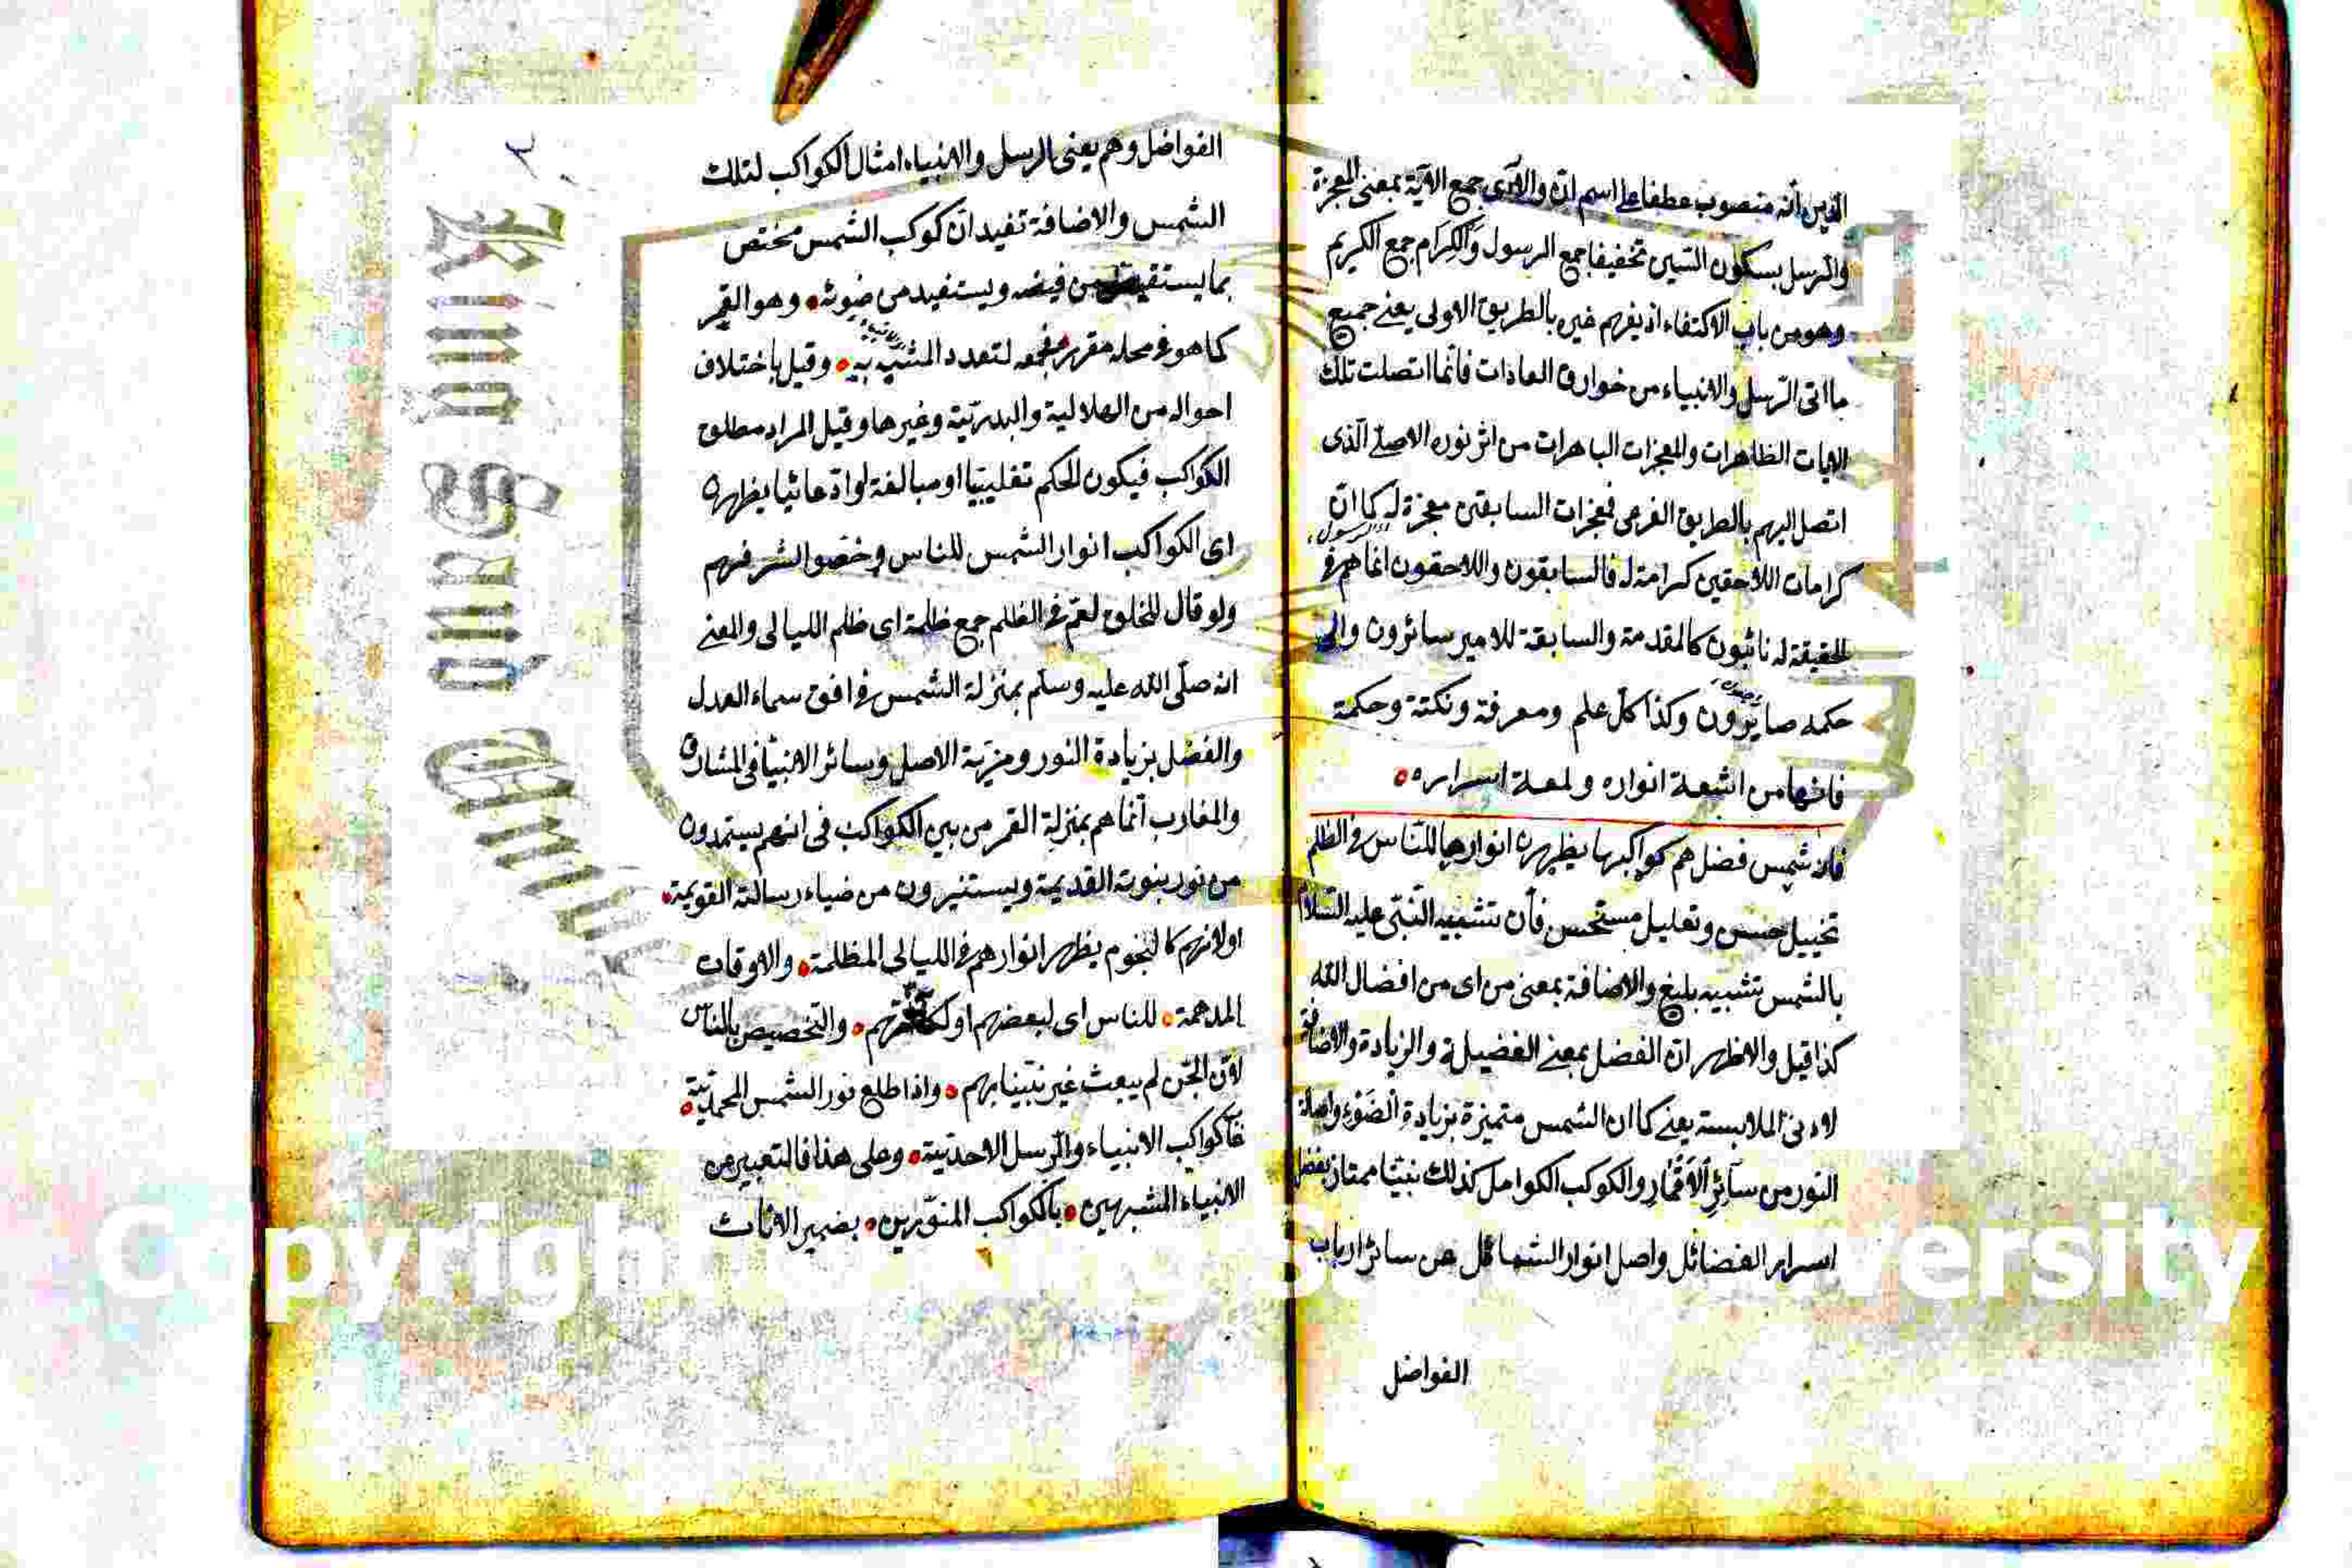 الدين أنه منصوب عطفا على اسم ان والآى جمع الآية بمعنى المعجزة
والرسل بسكون السين تخفيفا جمع الرسول والكرام جمع الكريم
وهو من باب الاكتفاء اذ يفهم غيره بالطريق الاولى يعنى جميع
ما اتى الرسل والانبياء من خوارق العادات فانما اتصلت تلك
الايات الظاهرات والمعجزات الباهرات من اثر نوره الاصلى الذى
اتصل اليهم بالطريق الفرعى فمعجزات السابقين معجزة له كما ان
كرامات اللاحقين كرامة له فالسابقون واللاحقون انما هم فى
الحقيقة له نائبون كالمقدمة والسابقة للامير سائرون والى
حكمه صايرون وكذا كل علم ومعرفة ونكتة وحكمة
فانها من اشعة انواره ولمعة اسراره
فانه شمس فضل هم كواكبها يظهرن انوارها للناس فى الظلم
تخييل حسن وتعليل مستحسن فأن تشبيه النبى عليه السلام
بالشمس تشبيه بليغ والاضافة بمعنى من اى من افضال الله
كذا قيل والاظهر ان الفضل بمعنى الفضيلة والزيادة والاضافة
لادنى الملابسة يعنى كما ان الشمس متميزة بزيادة الضوء واصالة
النور من سائر الاقمار والكوكب الكوامل كذلك نبينا ممتاز بفضل
اسرار الفضائل واصل انوار الشمائل عن سائر ارباب
الفواضل
الفواضل وهم يعنى الرسل والانبياء امثال الكواكب لتلك
الشمس والاضافة تفيد ان كوكب الشمس مختص
بما يستفيض من فيضه ويستفيد من ضوئه وهو القمر
كما هو فى محله مقرر فجمعه لتعدد المشبه به وقيل باختلاف
احواله من الهلالية والبدرية وغيرها وقيل المراد مطلق
الكواكب فيكون الحكم تغليبيا او مبالغة او ادعائيا يظهرن
اى الكواكب انوار الشمس للناس وخصوا لشرفهم
ولو قال للخلق لعم فى الظلم جمع ظلمة اى ظلم الليالى والمعنى
انه صلى الله عليه وسلم بمنزلة الشمس فى افق سماء العدل
والفضل بزيادة النور ومزية الاصل وسائر الانبياء فى المشارق
والمغارب انما هم بمنزلة القمر من بين الكواكب فى انهم يستمدون
من نور نبوته القديمة ويستنيرون من ضياء رسالته القويمة
او لانهم كالنجوم يظهر انوارهم فى الليالى المظلمة والاوقات
المدهمة للناس اى لبعضهم او والتخصيص بالناس
لان الجن لم يبعث غير نبينا بهم واذا طلع نور الشمس المحمدية
غاب كواكب الانبياء والرسل الاحدية وعلى هذا فالتعبير من
الانبياء المشبهين بالكواكب المنورين بضمير الاناث
King Saud
Copyright King Saud University